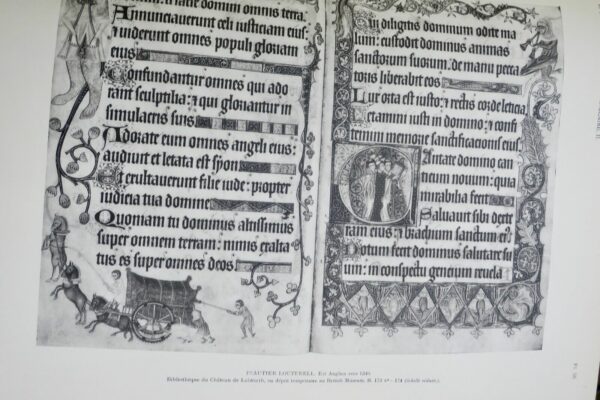 Annunciauerunt celi iustitiam eius:
uiderunt omnes populi gloriam
eius
Confundantur omnes qui ado
rant sculptilia: et qui gloriantur in
simulacris suis
Adorate eum omnes angeli eius:
audiuit et letata est syon
Et exultauerunt filie iude: propter
iudicia tua domine
Quoniam tu dominus altissimus
super omnem terram: nimis exalta
tus es super omnes deos
Qui diligitis dominum odite ma
lum: custodit dominus animas
sanctorum suorum: de manu pecca
toris liberabit eos
Lux orta est iusto: et rectis corde leticia
Letamini iusti in domino: et confi
temini memorie sanctificationis eius
Cantate domino can
ticum nouum: quia
mirabilia fecit
Saluauit sibi dexte
ra eius: et brachium sanctum eius
Notum fecit dominus salutare su
um: in conspectu gencium reuela
PSAUTIER LOUTERELL. Est Anglien vers 1340.
Bibliothèque du Château de Lulworth, en dépôt temporaire au British Museum.